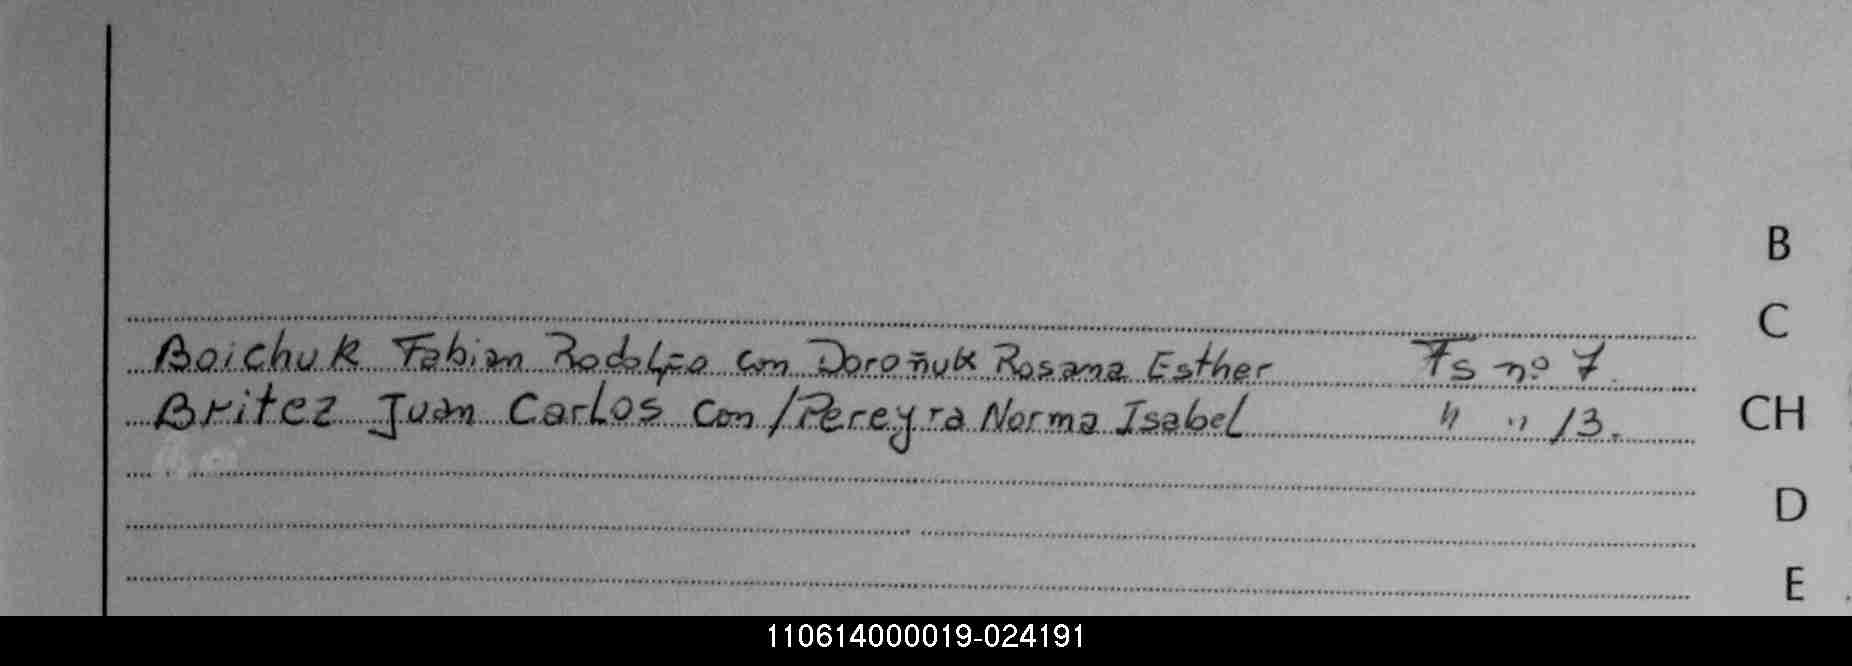 B
C
Boichuk Fabian Rodolfo con Doroñuk Rosana Esther Fs nº 7.
Britez Juan Carlos con / Pereyra Norma Isabel " " 13.
CH
D
E
110614000019-024191